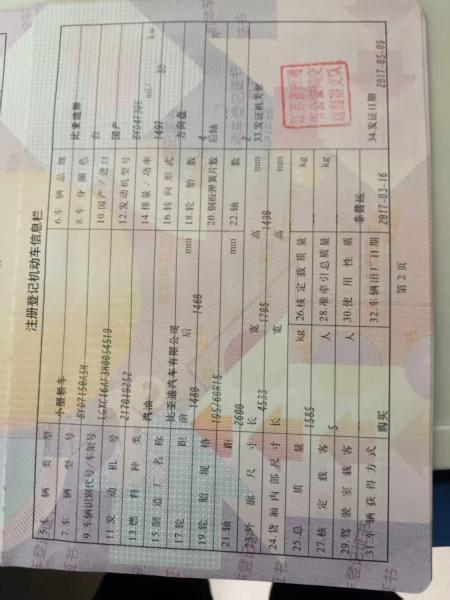 注册登记机动车信息栏
5.车辆类型 小型轿车 6.车辆品牌 比亚迪牌
7.车辆型号 BYQ7150A5H 8.车身颜色
9.车辆识别代号/车架号 10.国产/进口 国产
11.发动机号 217019252 12.发动机型号
13.燃料种类 汽油 14.排量/功率 1497 ml/ 80 kw
15.制造厂名称 比亚迪汽车有限公司 16.转向形式 方向盘
17.轮距 前 1480 后 1460 mm 18.轮胎数 4
19.轮胎规格 195/60R15 20.钢板弹簧片数 后轴
21.轴距 2600 mm 22.轴数 2
23.外廓尺寸 长 4533 宽 1705 高 1490 mm 33.发证机关章
24.货厢内部尺寸 长 宽 高 mm
25.总质量 1585 kg 26.核定载质量 kg
27.核定载客 5 人 28.准牵引总质量 kg
29.驾驶室载客 人 30.使用性质 非营运
31.车辆获得方式 购买 32.车辆出厂日期 2017-03-16 34.发证日期 2017-05-09
第 2 页